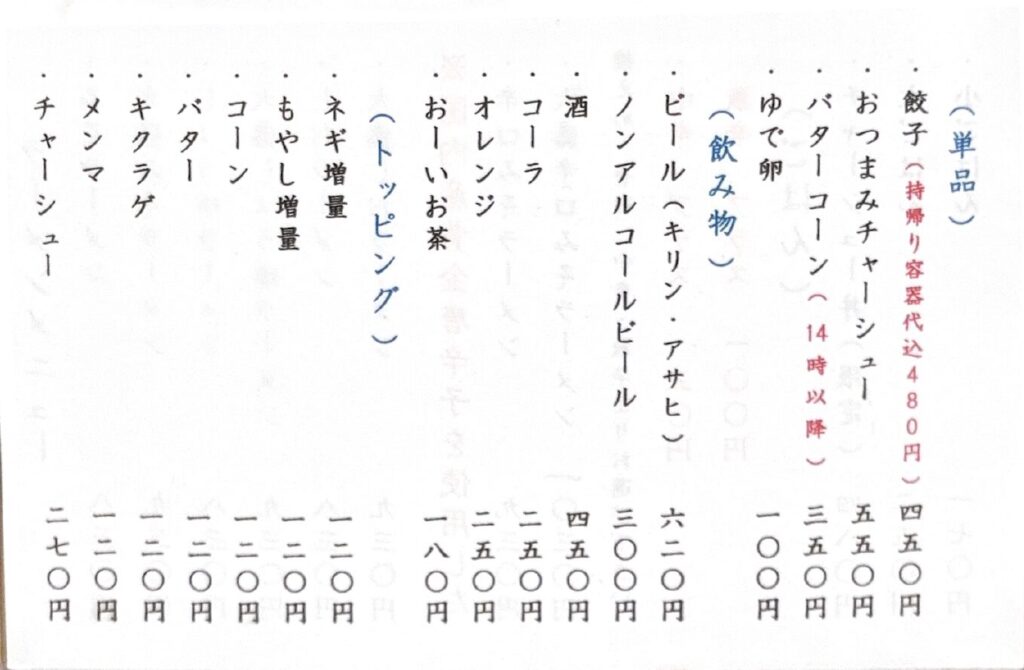 （単品）
・餃子（持帰り容器代込480円）四五〇円
・おつまみチャーシュー 五五〇円
・バターコーン（14時以降）三五〇円
・ゆで卵 一〇〇円
（飲み物）
・ビール（キリン・アサヒ）六二〇円
・ノンアルコールビール 三〇〇円
・酒 四五〇円
・コーラ 二五〇円
・オレンジ 二五〇円
・おーいお茶 一八〇円
（トッピング）
・ネギ増量 一二〇円
・もやし増量 一二〇円
・コーン 一二〇円
・バター 一二〇円
・キクラゲ 一二〇円
・メンマ 一二〇円
・チャーシュー 二七〇円